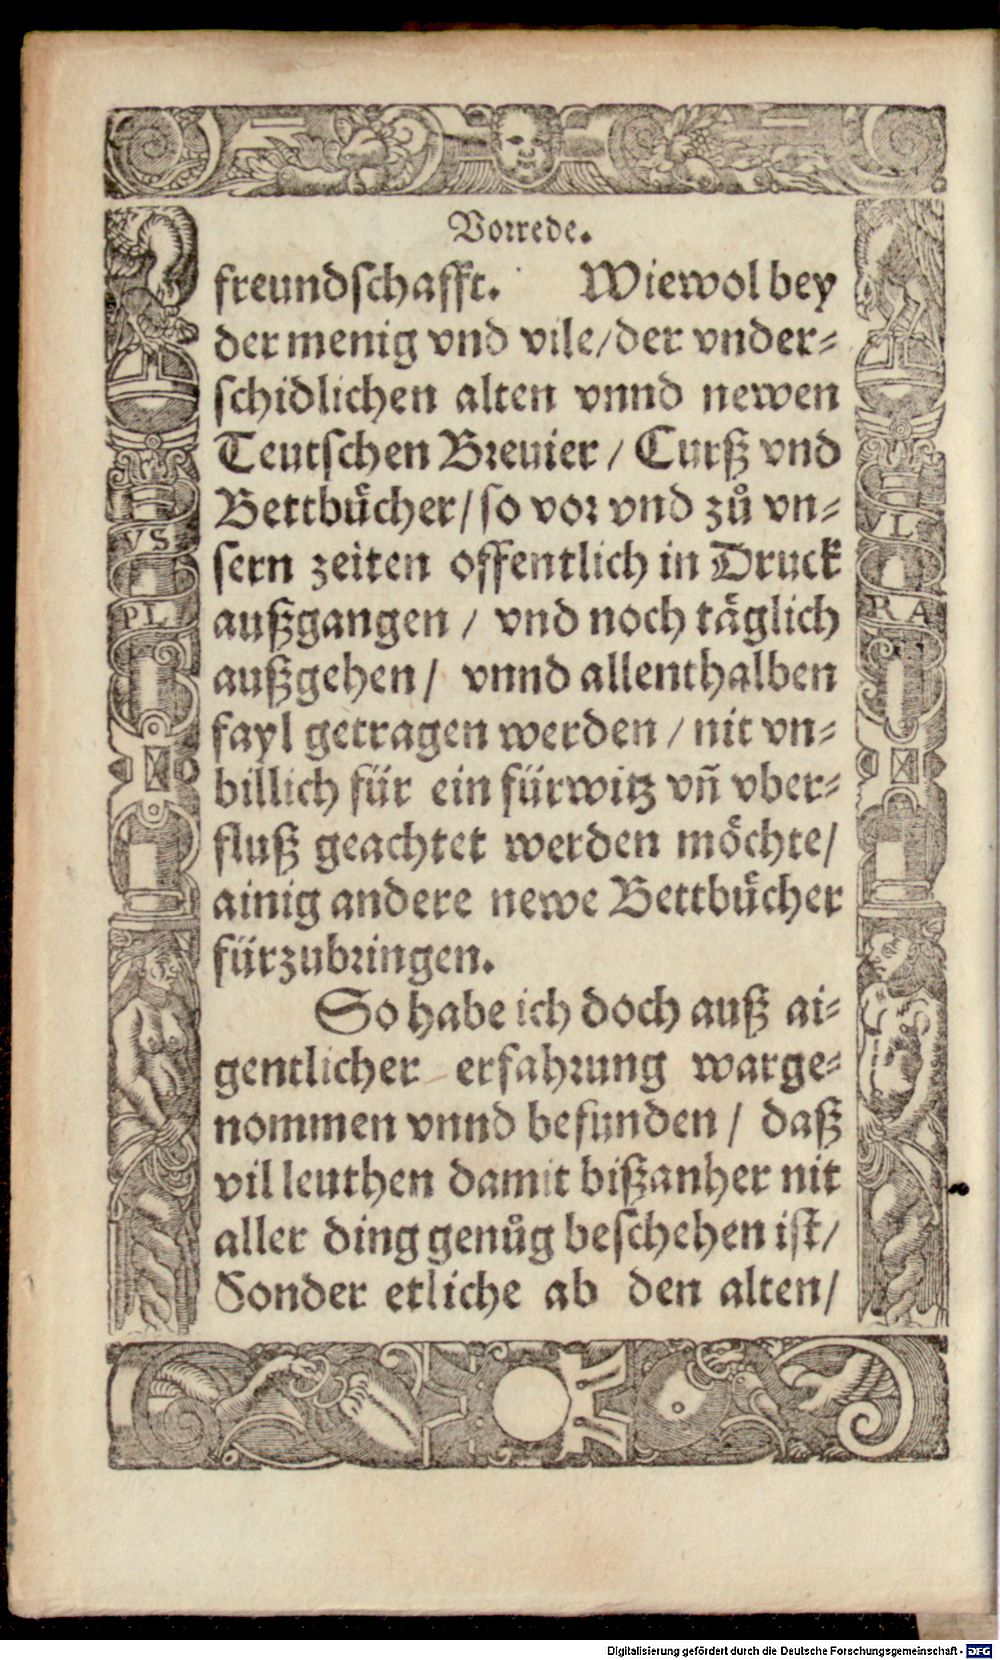 Vorrede.
freundschafft. Wiewol bey
der menig vnd vile/der vnder⸗
schidlichen alten vnnd newen
Teutschen Breuier / Curß vnd
Bettbuͤcher/so vor vnd zuͦ vn⸗
sern zeiten offentlich in Druck
außgangen / vnd noch taͤglich
außgehen/ vnnd allenthalben
fayl getragen werden / nit vn⸗
billich fuͤr ein fuͤrwitz vñ vber⸗
fluß geachtet werden moͤchte/
ainig andere newe Bettbuͤcher
fuͤrzubringen.
So habe ich doch auß ai⸗
gentlicher erfahrung warge⸗
nommen vnnd befunden / daß
vil leuthen damit bißanher nit
aller ding genuͦg beschehen ist/
Sonder etliche ab den alten/
VS
PL
VL
RA
Digitalisierung gefördert durch die Deutsche Forschungsgemeinschaft - DFG